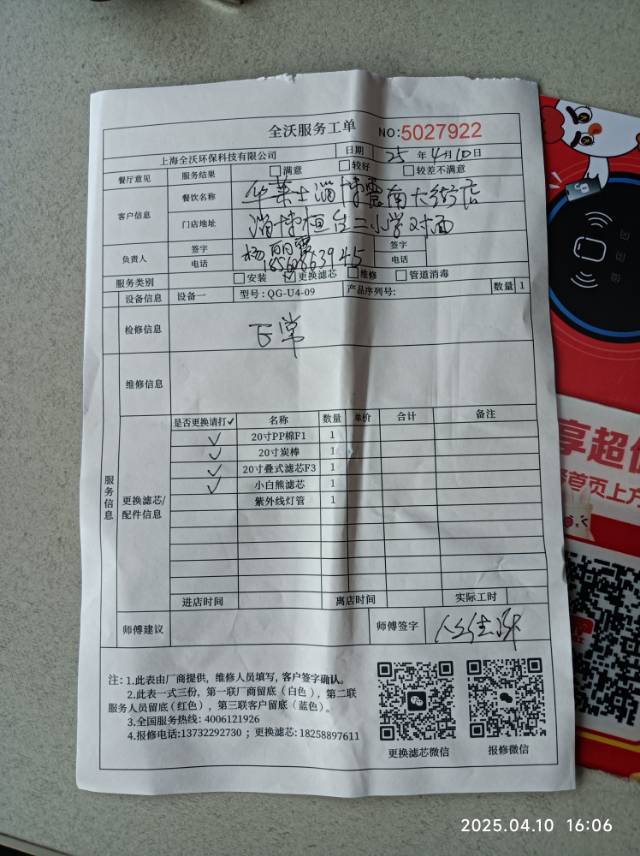 全沃服务工单 NO:5027922
上海全沃环保科技有限公司 日期 25 年 4月10日
餐厅意见 服务结果 □满意 □较好 □较差不满意
客户信息 餐饮名称 华莱士淄博云南大街店
门店地址 淄博桓台二小学对面
负责人 签字 杨丽霞 签字
电话 电话
服务类别 □安装 ☑更换滤芯 □维修 □管道消毒
设备信息 设备一 型号: QG-U4-09 产品序列号: 数量 1
检修信息 正常
维修信息
服务信息
更换滤芯/配件信息
是否更换请打✓ 名称 数量 单价 合计 备注
✓ 20寸PP棉F1 1
✓ 20寸炭棒 1
✓ 20寸叠式滤芯F3 1
✓ 小白熊滤芯 1
紫外线灯管 1
进店时间 离店时间 实际工时
师傅建议 师傅签字
注: 1.此表由厂商提供，维修人员填写，客户签字确认。
2.此表一式三份，第一联厂商留底（白色），第二联
服务人员留底（红色），第三联客户留底（蓝色）。
3.全国服务热线: 4006121926
4.报修电话:13732292730 ; 更换滤芯: 18258897611
更换滤芯微信 报修微信
享超
首页上方
2025.04.10 16:06